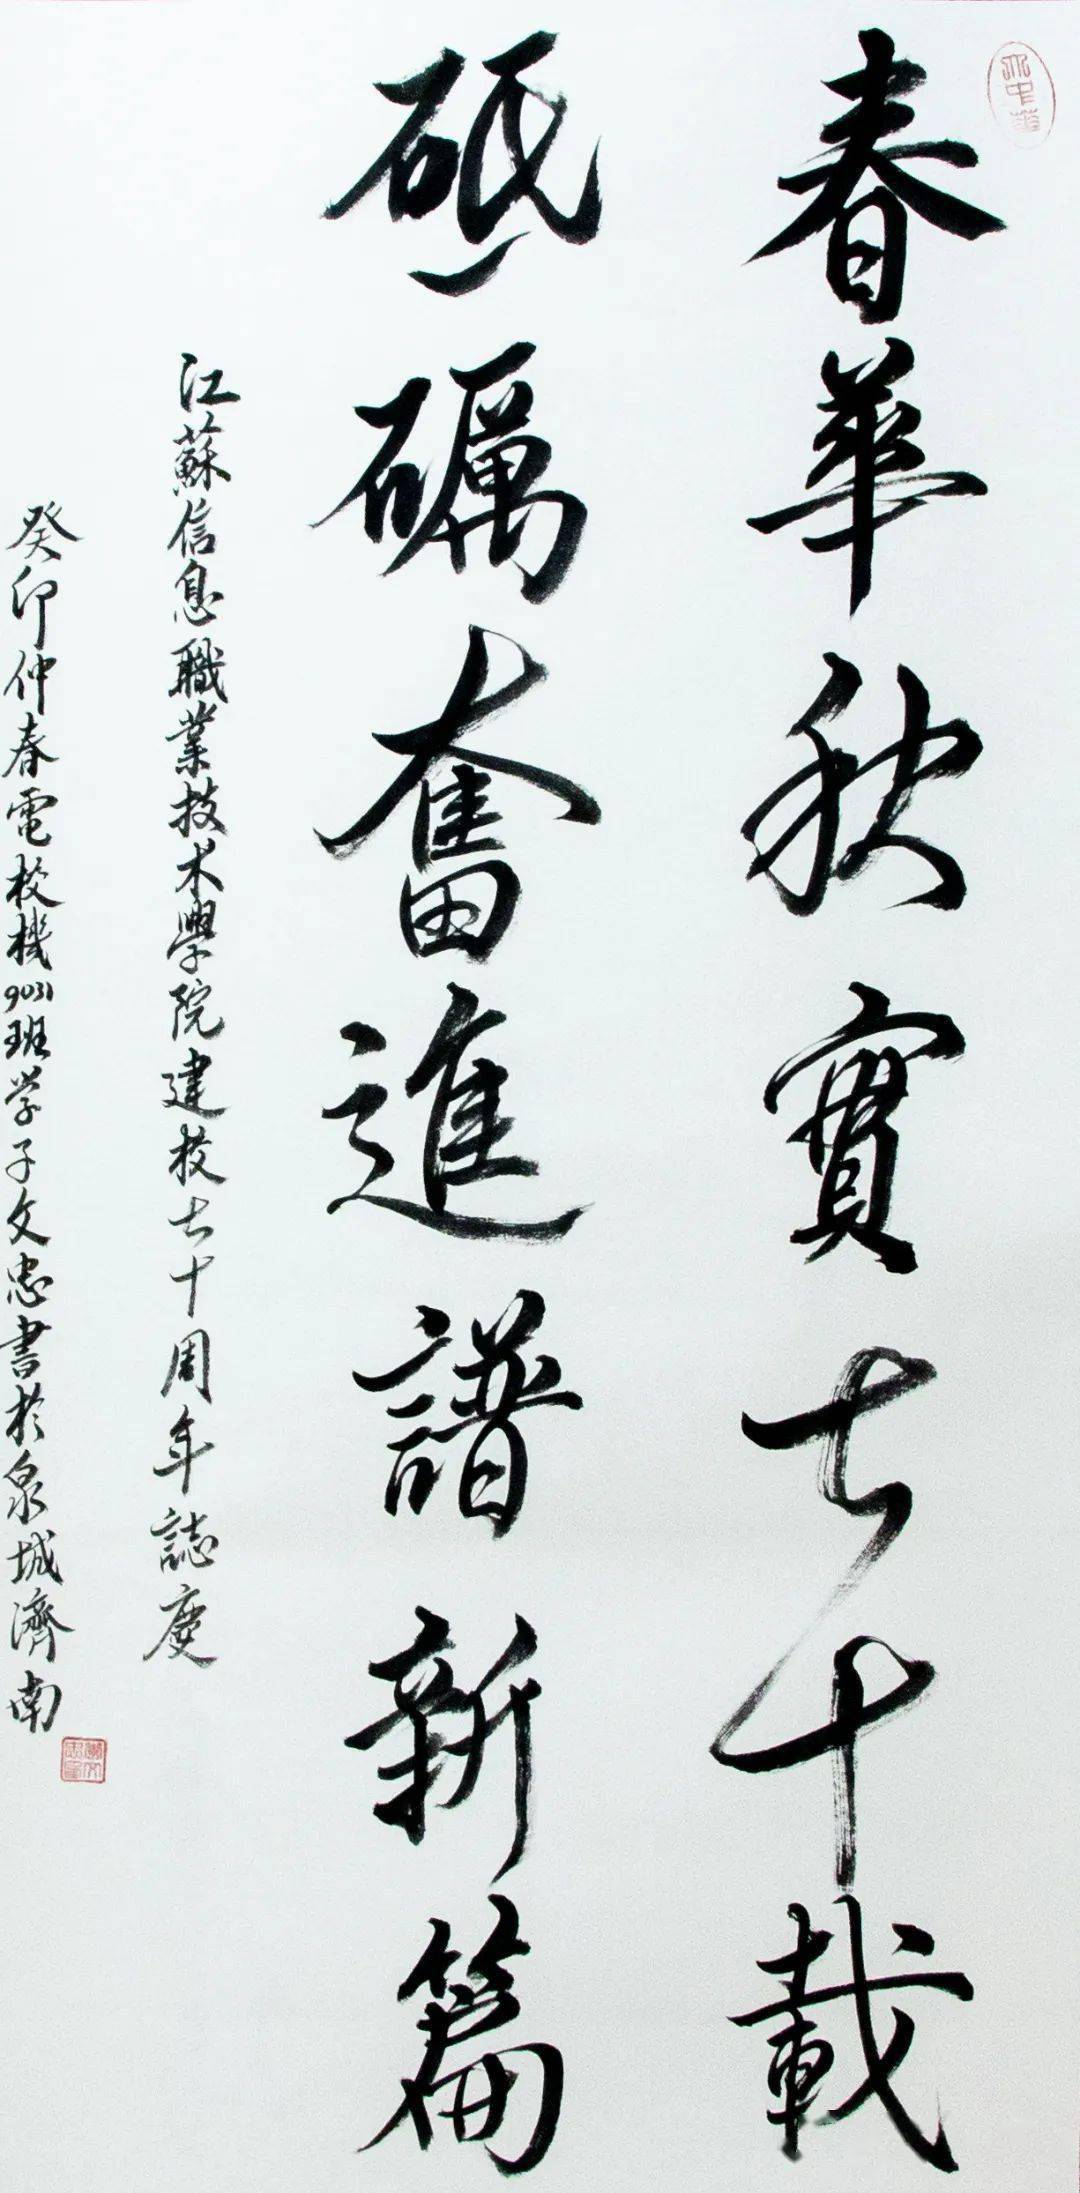 春華秋實七十載
砥礪奮進譜新篇
江蘇信息職業技术學院建校七十周年誌慶
癸卯仲春電校機9031班学子文忠書於泉城濟南